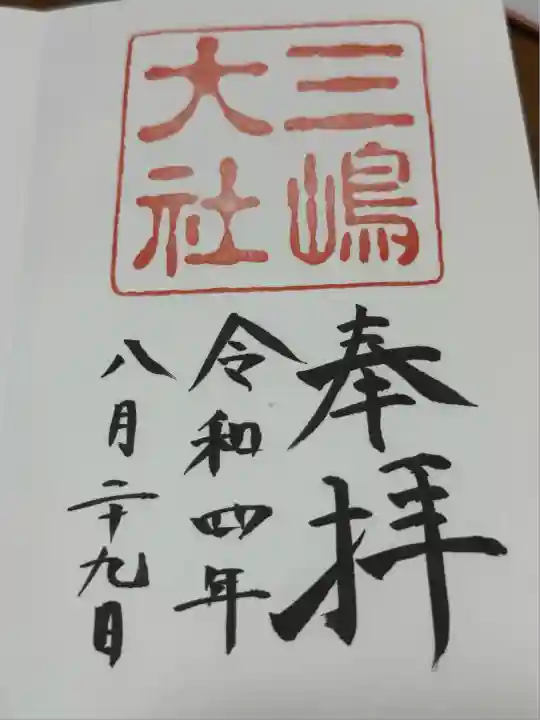 三嶋
大社
奉拝
令和四年
八月二十九日